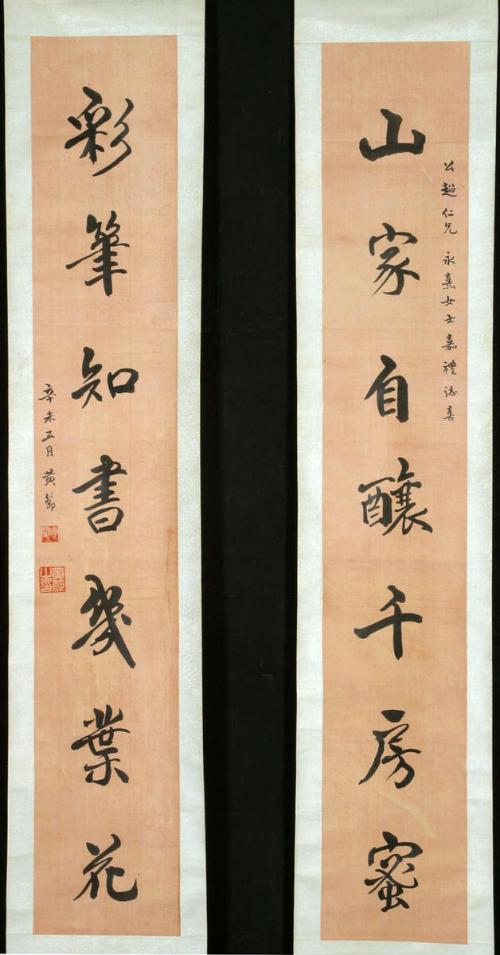 公超仁兄 永熹女士嘉禮誌喜
山家自釀千房蜜
彩筆知書幾葉花
辛未五月 黃節